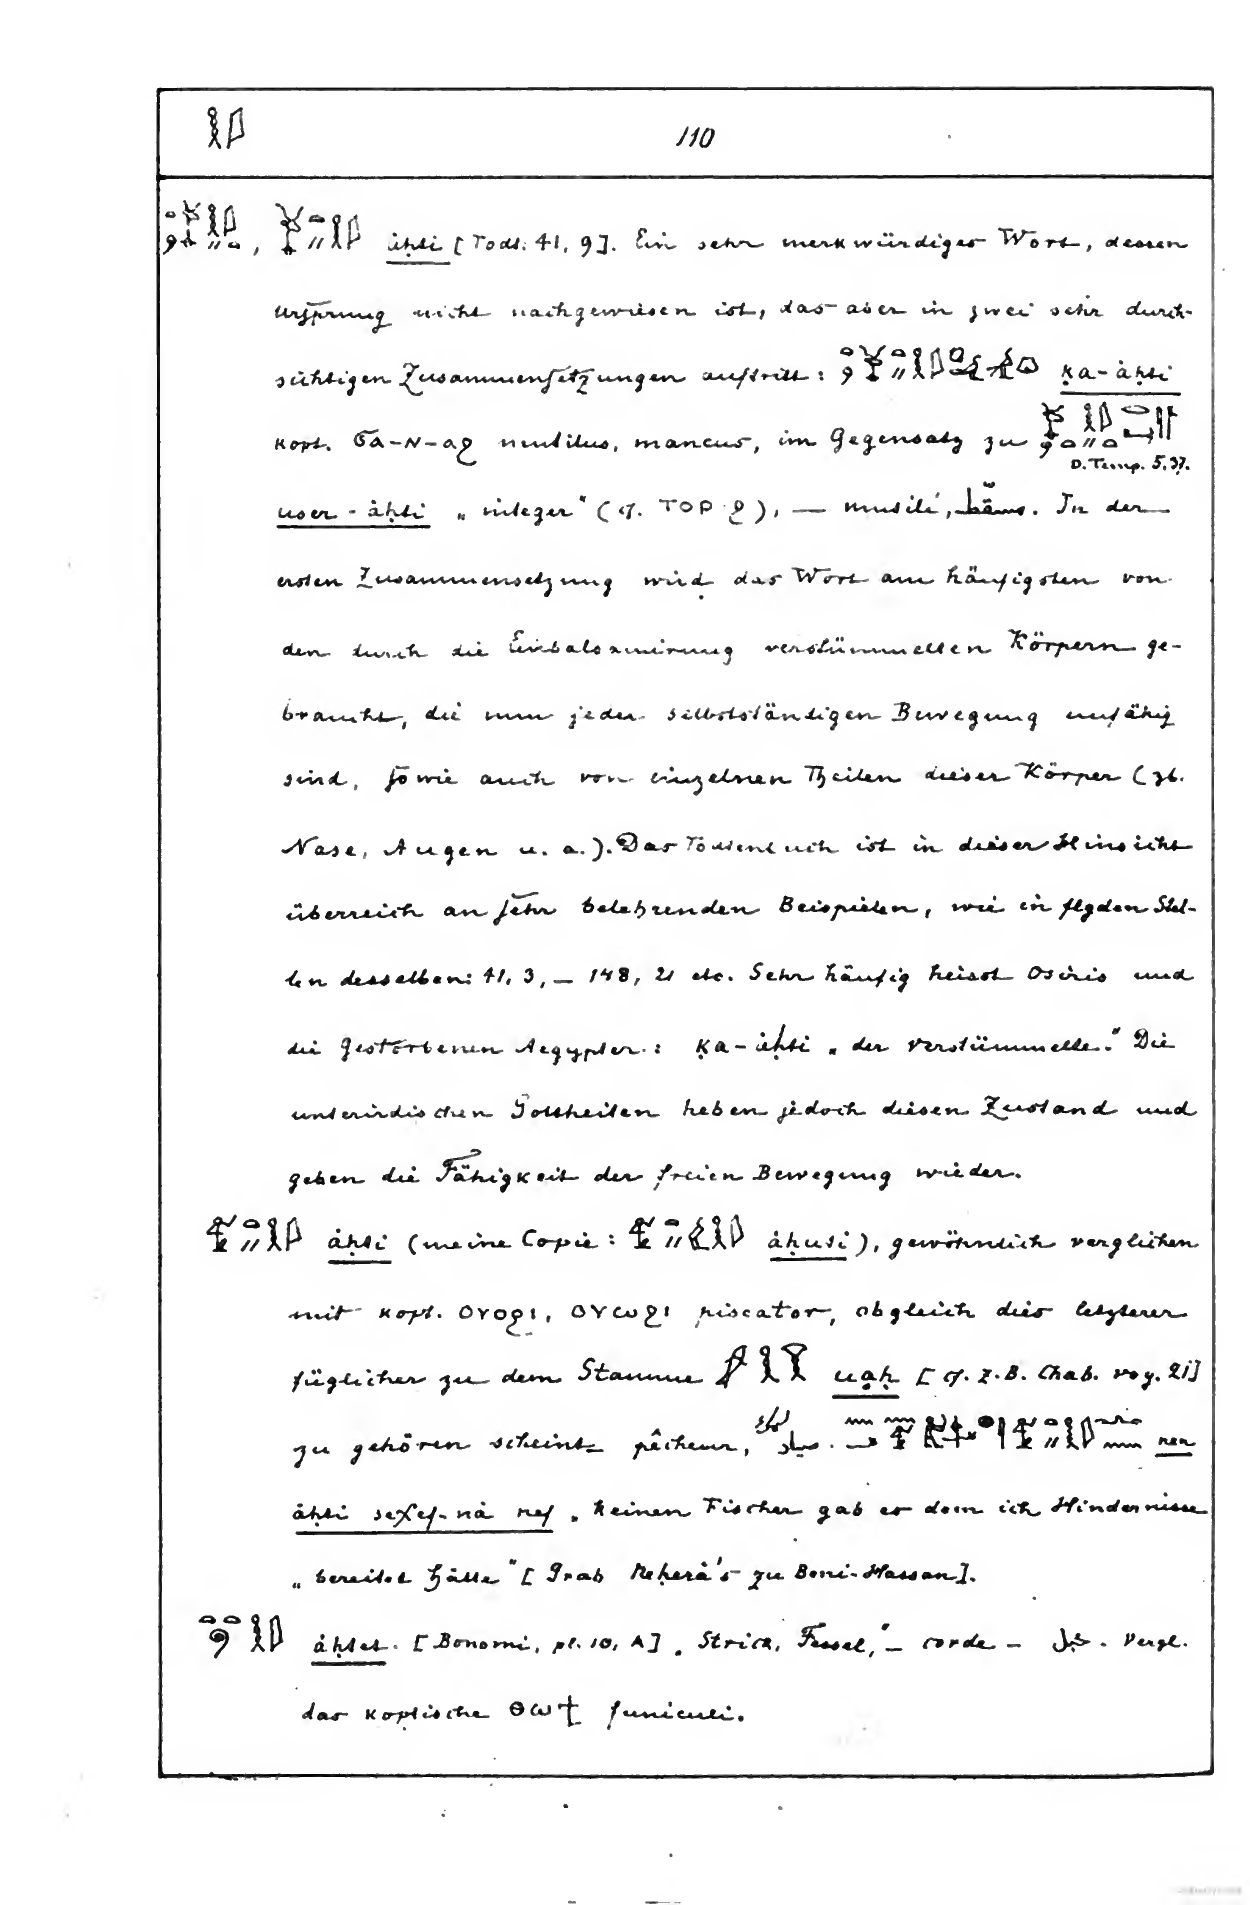 110
åḥti [Todt. 41, 9]. Ein sehr merkwürdiges Wort, dessen
Ursprung nicht nachgewiesen ist, das aber in zwei sehr durch-
sichtigen Zusammensetzungen auftritt: ḳa-åḥti
kopt. ϭⲁ-ⲛ-ⲁϩ mutilus, mancus, im Gegensatz zu
D. Temp. 5, 37.
user-åḥti „integer" (cf. ⲧⲟⲣ ϩ), — mutilé, In der
ersten Zusammensetzung wird das Wort am häufigsten von
den durch die Einbalsamirung verstümmelten Körpern ge-
braucht, die nun jeder selbstständigen Bewegung unfähig
sind, sowie auch von einzelnen Theilen dieser Körper (zb.
Nase, Augen u. a.). Das Todtenbuch ist in dieser Hinsicht
überreich an sehr belehrenden Beispielen, wie in flgden Stel-
len desselben: 41, 3, — 148, 21 etc. Sehr häufig heisst Osiris und
die gestorbenen Aegypter: ḳa-åḥti „der Verstümmelte." Die
unterirdischen Gottheiten heben jedoch diesen Zustand und
geben die Fähigkeit der freien Bewegung wieder.
åḥti (meine Copie: åḥuti), gewöhnlich verglichen
mit kopt. ⲟⲩⲟϩⲓ, ⲟⲩⲱϩⲓ piscator, obgleich dies letzterer
füglicher zu dem Stamme uaḥ [cf. z. B. Chab. voy. 21]
zu gehören scheint pêcheur, صياد. nen
åḥti seχef-nå nef „keinen Fischer gab es dem ich Hindernisse
„bereitet hätte" [Grab Neḥerå's zu Beni-Hassan].
åḥtet. [Bonomi, pl. 10, A] „Strick, Fessel," — corde — حبل. Vergl.
das koptische ⲑⲱϯ funiculi.